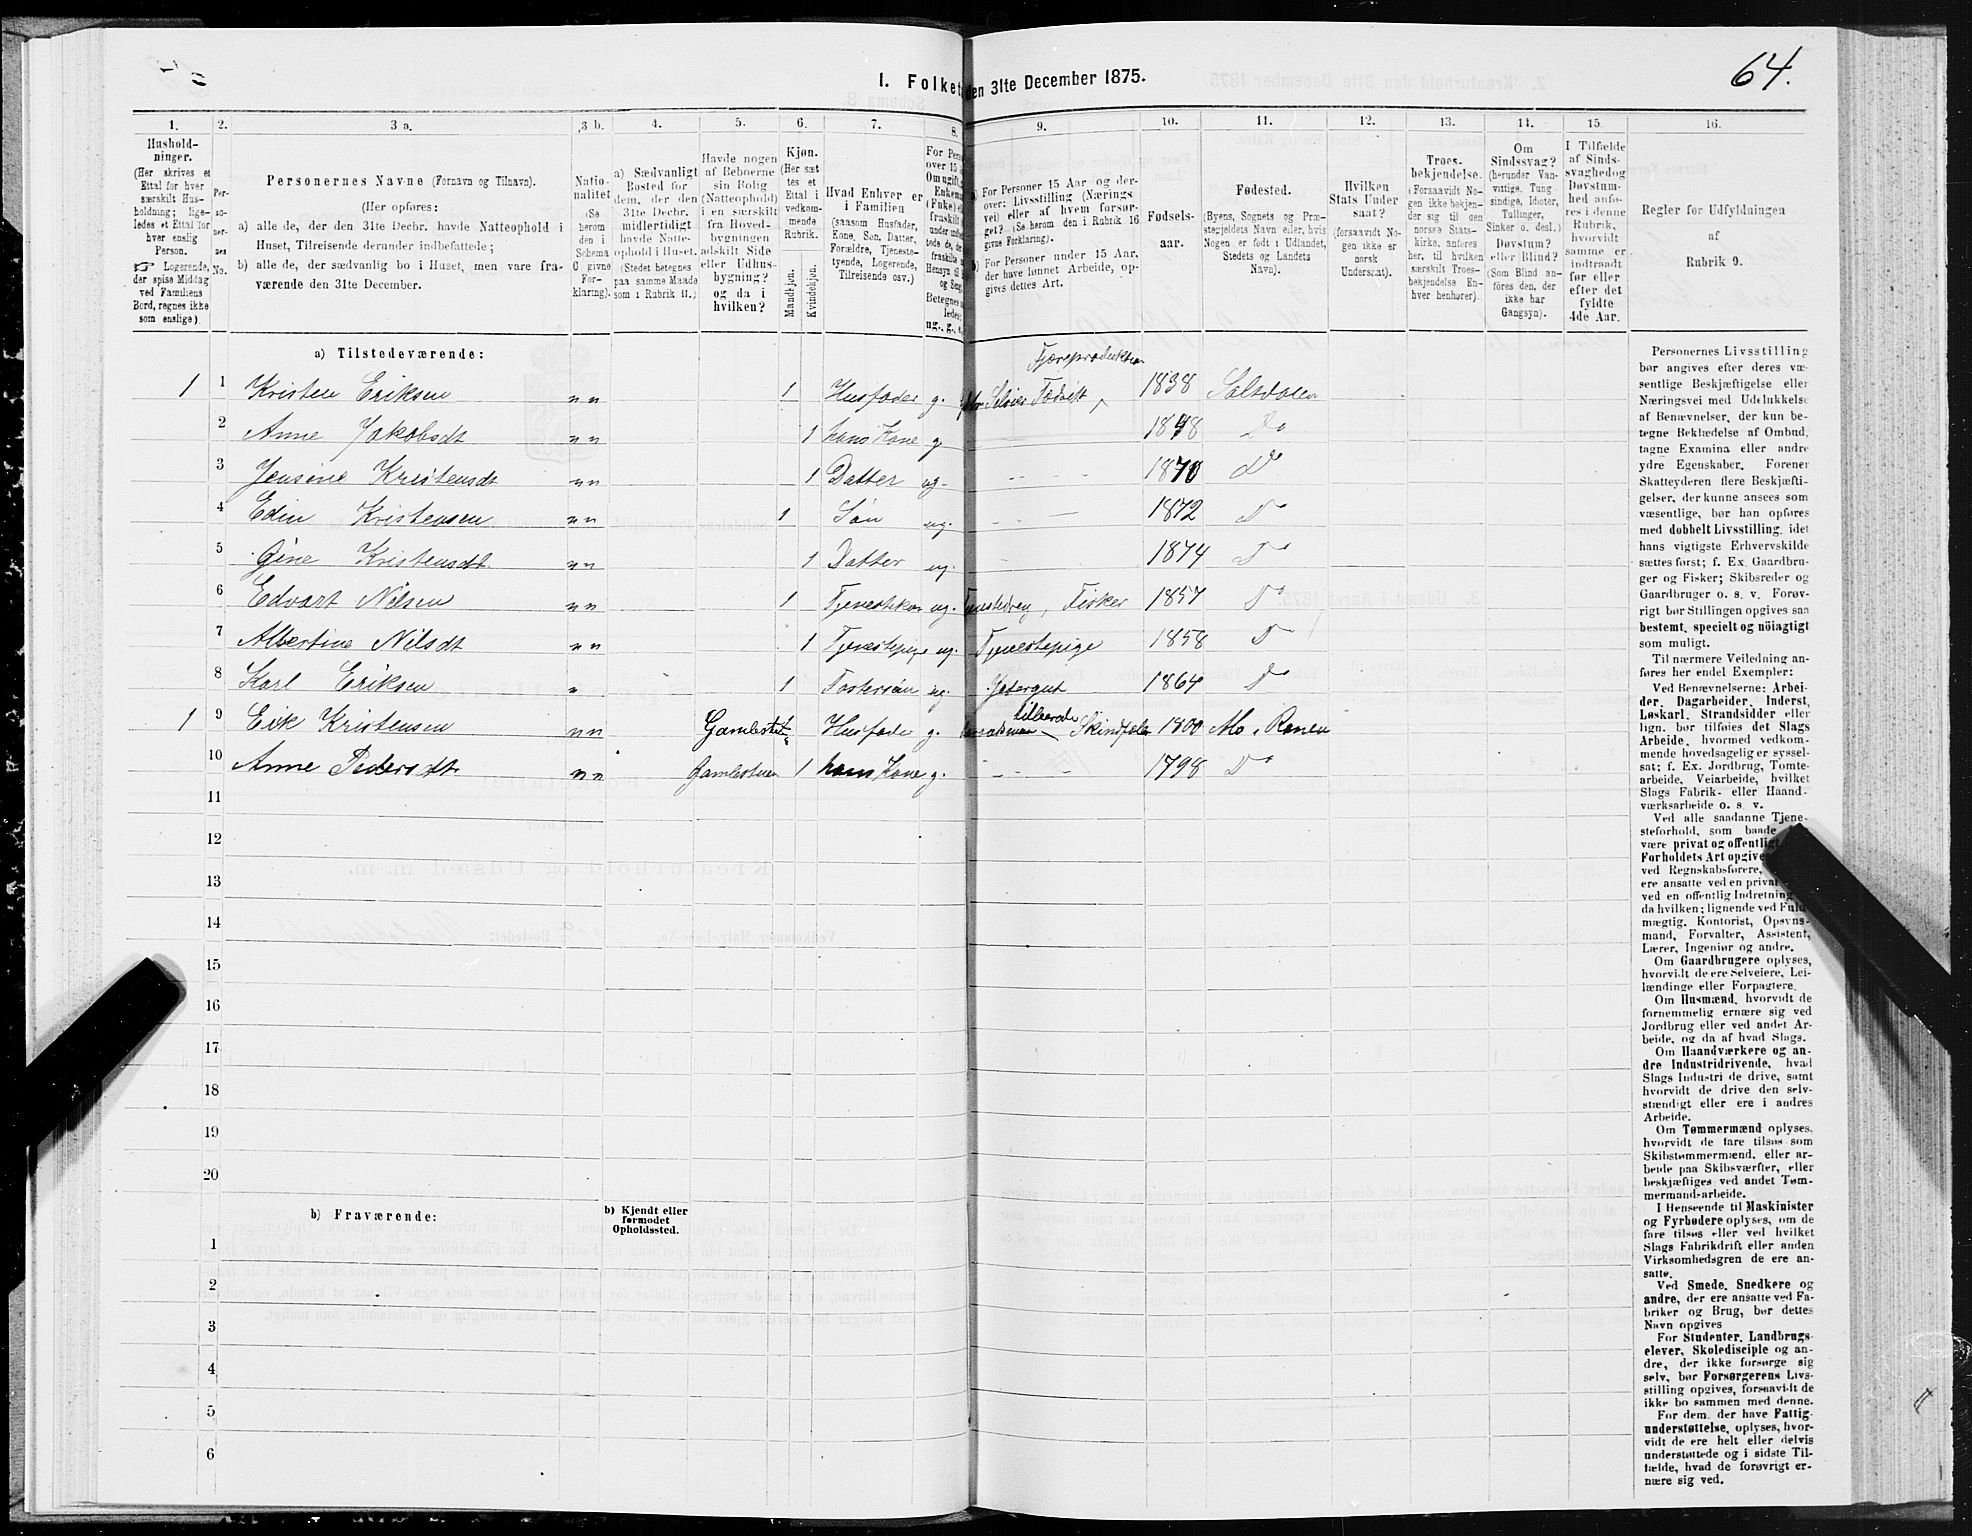 64.
1. Folket
den 31te December 1875.
1. 2. 3 a. 3 b. 4. 5. 6. 7. 8. 9. 10. 11. 12. 13. 14. 15. 16.
Hushold-
ninger.
(Her skrives et
Ettal for hver
særskilt Hus-
holdning; lige-
ledes et Ettal for
hver enslig
Person.
☞ Logerende,
der spise Middag
ved Familiens
Bord, regnes ikke
som enslige).
Per-
so-
ner-
nes
No.
Personernes Navne (Fornavn og Tilnavn).
(Her opføres:
a) alle de, der den 31te Decbr. havde Natteophold i
Huset, Tilreisende derunder indbefattede;
b) alle de, der sædvanlig bo i Huset, men vare fra-
værende den 31te December.
Natio-
nalitet
(Se
herom
den i
Schema
6 givne
For-
klaring).
a) Sædvanligt
Bosted for
dem, der den
31te Decbr.
midlertidigt
havde Natte-
ophold i Huset.
(Stedet betegnes
paa samme Maade
som i Rubrik 11.)
Havde nogen
af Beboerne
sin Bolig
(Natteophold)
i en særskilt
fra Hoved-
bygningen
adskilt Side
eller Udhus-
bygning?
og da i
hvilken?
Kjøn.
(Her sæt
tes et
Ettal i
vedkom-
mende
Rubrik.
Mandkjøn.
Kvindekjøn.
Hvad Enhver er
i Familien
(saasom Husfader,
Kone, Søn, Datter,
Forældre, Tjeneste-
tyende, Logerende,
Tilreisende osv.)
For Pers
over 15 A
Om ugift, g
Enkem
(Fnke) e
fraskilt
ug., g., e.
a) For Personer 15 Aar og der-
over: Livsstilling (Nærings
vei) eller af hvem forsør-
get? (Se herom den i Rubrik 16
givne Forklaring).
b) For Personer under 15 Aar,
der have lønnet Arbeide, op-
gives dettes Art.
Fødsels-
aar.
Fødested.
(Byens, Sognets og Præ-
stegjeldets Navn eller, hvis
Nogen er født i Udlandet,
Stedets og Landets
Navn).
Hvilken
Stats Under
saat?
(Forsaavidt No-
gen ikke er
norsk
Undersaat).
Troes-
bekjendelse.
(Forsaavidt No-
gen ikke bekjen-
der sig til den
norske Stats-
kirke, anføres
her, til hvilken
særskilt Troes-
bekjendelse En-
hver henhører).
Om
Sindssvag?
(herunder Van-
vittige, Tung
sindige, Idioter,
Tullinger,
Sinker o. desl.)
Døvstum?
eller Blind?
(Som Blind an-
føres den, der
ikke har
Gangsyn).
I Tilfælde
af Sinds-
svaghed og
Døvstum-
hed anfø-
res i denne
Rubrik,
hvorvidt
samme er
indtraadt
før eller
efter det
fyldte
4de Aar.
Regler før Udfyldningen
af
Rubrik 9.
a) Tilstedeværende:
Fjøreproduktion
1 1 Kristen Eriksen " " 1 Husfader g. Selveier Fødvift 1838 Saltdalen
2 Anne Jakobsdt " " 1 hans Kone g. 1848 Do
3 Jensine Kristensdt " " 1 Datter ug. 1870 Do
4 Edin Kristensen " " 1 Søn ug. 1872 Do
5 Gine Kristensdt " " 1 Datter ug. 1874 Do
6 Edvart Nilsen " " 1 ug. Fisker 1857 Do
7 Albertine Nilsdt " " 1 Tjenestepige ug. Tjenestepige 1858 Do
8 Karl Eriksen " 1 Fostersøn ug. Gjetergut 1864 Do
1 9 Erik Kristensen " " Husfader g. Skindfeler 1800 Mo, Ranen
10 Anne Pedersdt " " Gamlestuen 1 hans Kone g. 1798 Do
11
12
13
14
15
16
17
18
19
20
b) Fraværende:
b) Kjendt eller
formodet
Opholdssted.
1
2
3
4
5
6
Personernes Livsstilling
bør angives efter deres væ-
sentlige Beskjæftigelse eller
Næringsvei med Udelukkelse
af Benævnelser, der kun be-
tegne Beklædelse af Ombud,
tagne Examina eller andre
ydre Egenskaber. Forener
Skatteyderen flere Beskjæfti-
gelser, der kunne ansees som
væsentlige, bør han opføres
med dobbelt Livsstilling, idet
hans vigtigste Erhvervskilde
sættes først; f. Ex. Gaardbru-
ger og Fisker; Skibsreder og
Gaardbruger o. s. v. Forøv-
rigt bør Stillingen opgives saa
bestemt, specielt og nöiagtigt
som muligt.
Til nærmere Veiledning an-
føres her endel Exempler:
Ved Benævnelserne: Arbei-
der, Dagarbeider, Inderst,
Løskarl, Strandsidder eller
lign. bør tilføies det Slags
Arbeide, hvormed vedkom-
mende hovedsagelig er syssel-
sat; f. Ex. Jordbrug, Tomte-
arbeide, Veiarbeide, hvilket
Slags Fabrik- eller Haand-
værksarbeide o. s. v.
Ved alle saadanne Tjene-
steforhold, som baade
være privat og offentlig
Forholdets Art opgive
ved Regnskabsførere,
ere ansatte ved en privat
ved en offentlig Indretning
da hvilken; lignende ved Fuld
mægtig, Kontorist, Opsyns-
mand, Forvalter, Assistent,
Lærer, Ingeniør og andre.
Om Gaardbrugere oplyses,
hvorvidt de ere Selveiere, Lei-
lændinge eller Forpagtere.
Om Husmænd, hvorvidt de
fornemmelig ernære sig ved
Jordbrug eller ved andet Ar-
beide, og da af hvad Slags.
Om Haandværkere og an-
dre Industridrivende, hvad
Slags Industri de drive, samt
hvorvidt de drive den selv-
stændigt eller ere i andres
Arbeide.
Om Tømmermænd oplyses,
hvorvidt de fare tilsøs som
Skibstømmermænd, eller ar-
beide paa Skibsværfter, eller
beskjæftiges ved andet Tøm-
mermandsarbeide.
I Henseende til Maskinister
og Fyrbødere oplyses, om de
fare tilsøs eller ved hvilket
Slags Fabrikdrift eller anden
Virksomhedsgren de ere an-
satte.
Ved Smede, Snedkere og
andre, der ere ansatte ved Fa-
briker og Brug, bør dettes
Navn opgives
For Studenter, Landbrugs-
elever, Skoledisciple og an-
dre, der ikke forsørge sig
selv, bør Forsørgerens Livs-
stilling opgives, forsaavidt de
ikke bo sammen med denne.
For dem, der have Fattig-
understøttelse, oplyses, hvor-
vidt de ere helt eller delvis
understøttede og i sidste Til-
fælde, hvad de forøvrigt er-
nære sig ved.